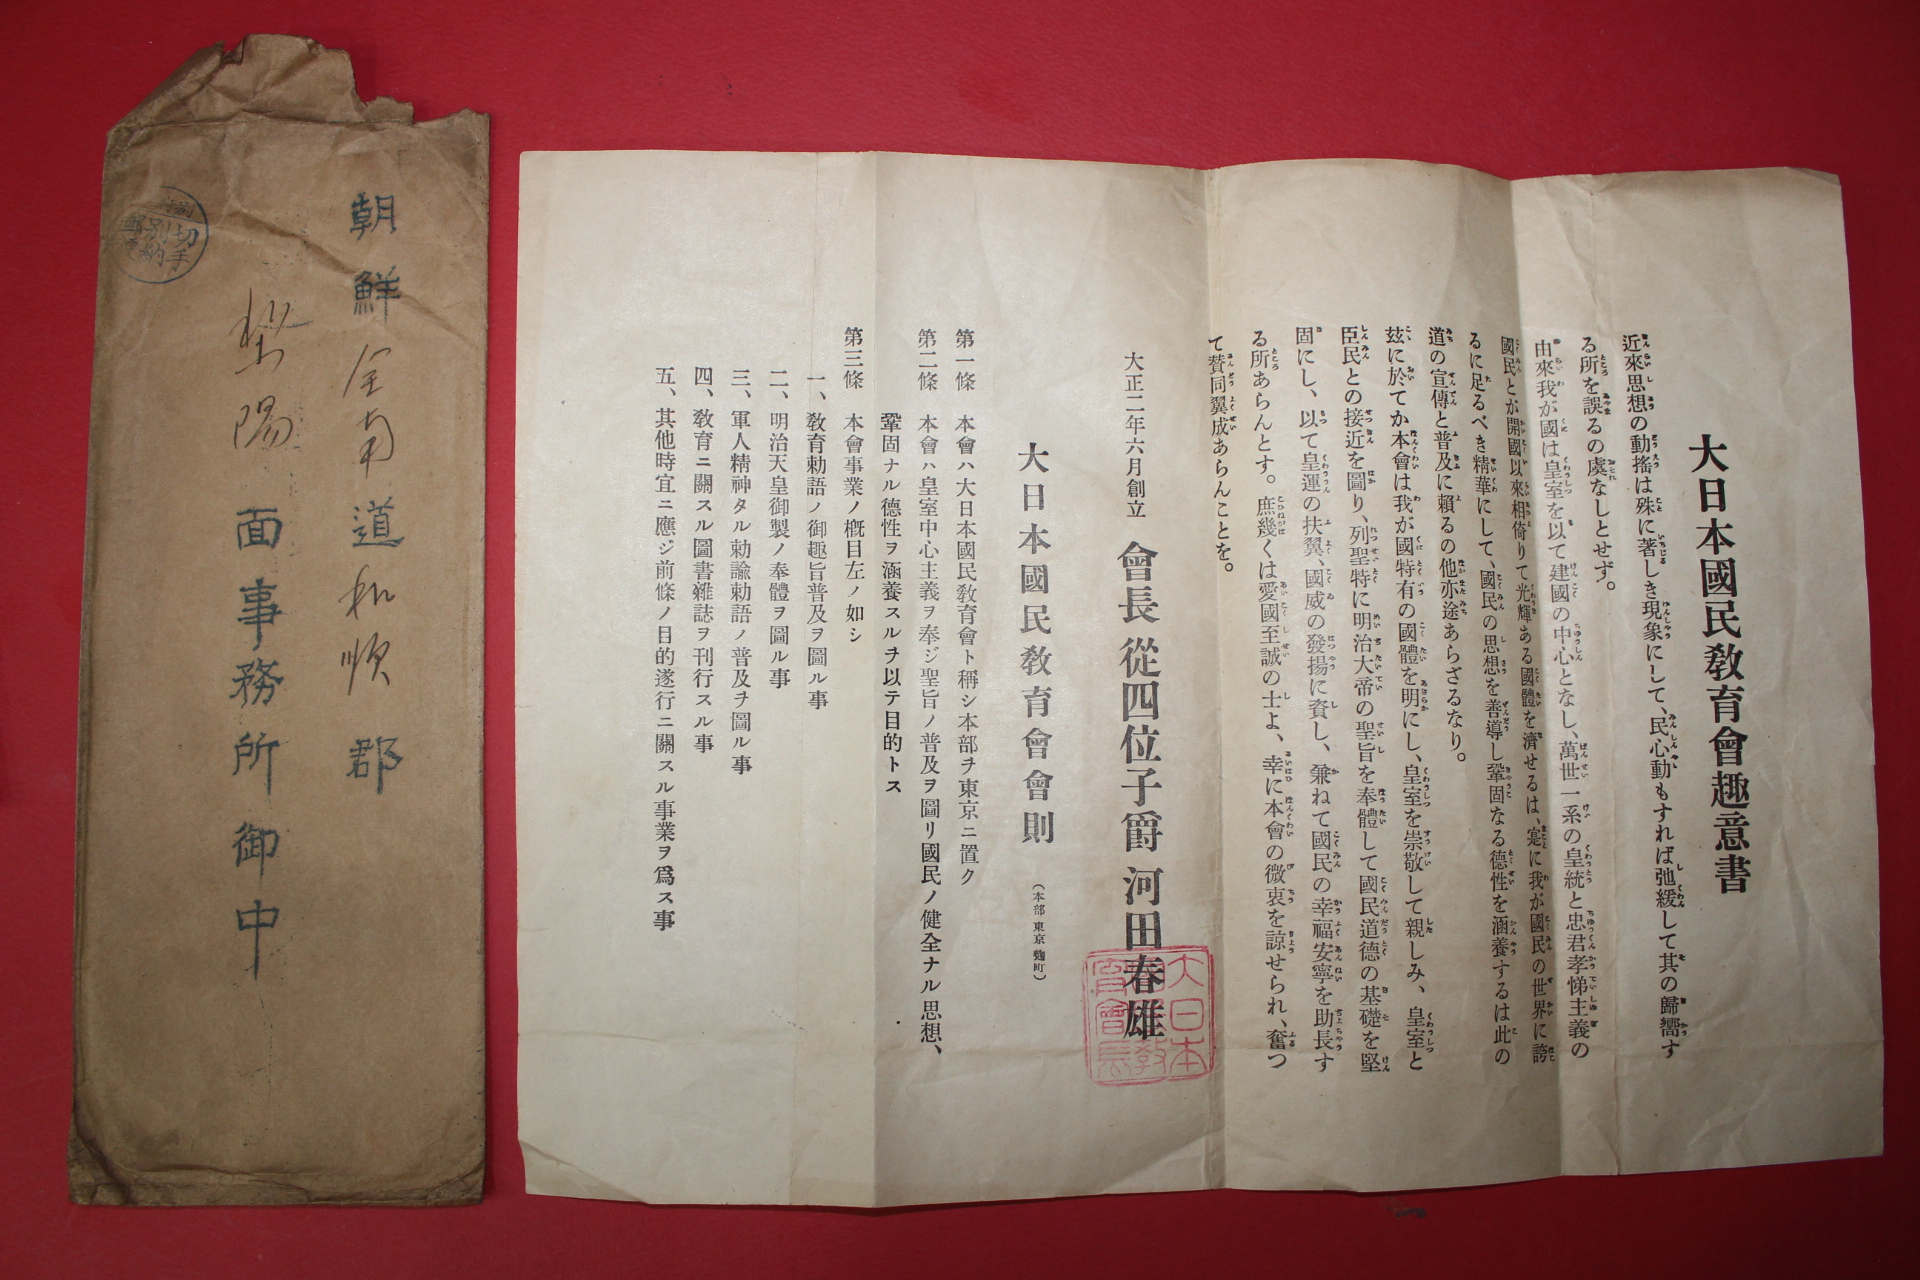 大日本國民敎育會趣意書
近來思想の動搖は殊に著しき現象にして、民心動もすれば弛緩して其の歸嚮す
る所を誤るの虞なしとせず。
由來我が國は皇室を以て建國の中心となし、萬世一系の皇統と忠君孝悌主義の
國民とが開國以來相倚りて光輝ある國體を濟せるは、寔に我が國民の世界に誇
るに足るべき精華にして、國民の思想を善導し鞏固なる德性を涵養するは此の
道の宣傳と普及に賴るの他亦途あらざるなり。
玆に於てか本會は我が國特有の國體を明にし、皇室を崇敬して親しみ、皇室と
臣民との接近を圖り、列聖特に明治大帝の聖旨を奉體して國民道德の基礎を堅
固にし、以て皇運の扶翼、國威の發揚に資し、兼ねて國民の幸福安寧を助長す
る所あらんとす。庶幾くは愛國至誠の士よ、幸に本會の微衷を諒せられ、奮つ
て贊同翼成あらんことを。
大正二年六月創立 會長 從四位子爵 河田春雄
大日本國民敎育會會則 (本部 東京 麴町)
第一條 本會ハ大日本國民敎育會ト稱シ本部ヲ東京ニ置ク
第二條 本會ハ皇室中心主義ヲ奉ジ聖旨ノ普及ヲ圖リ國民ノ健全ナル思想、
鞏固ナル德性ヲ涵養スルヲ以テ目的トス
第三條 本會事業ノ槪目左ノ如シ
一、敎育勅語ノ御趣旨普及ヲ圖ル事
二、明治天皇御製ノ奉體ヲ圖ル事
三、軍人精神タル勅諭勅語ノ普及ヲ圖ル事
四、敎育ニ關スル圖書雜誌ヲ刊行スル事
五、其他時宜ニ應ジ前條ノ目的遂行ニ關スル事業ヲ爲ス事
大日本
育會長
朝鮮全南道和順郡
面事務所御中
切手
別納
郵便